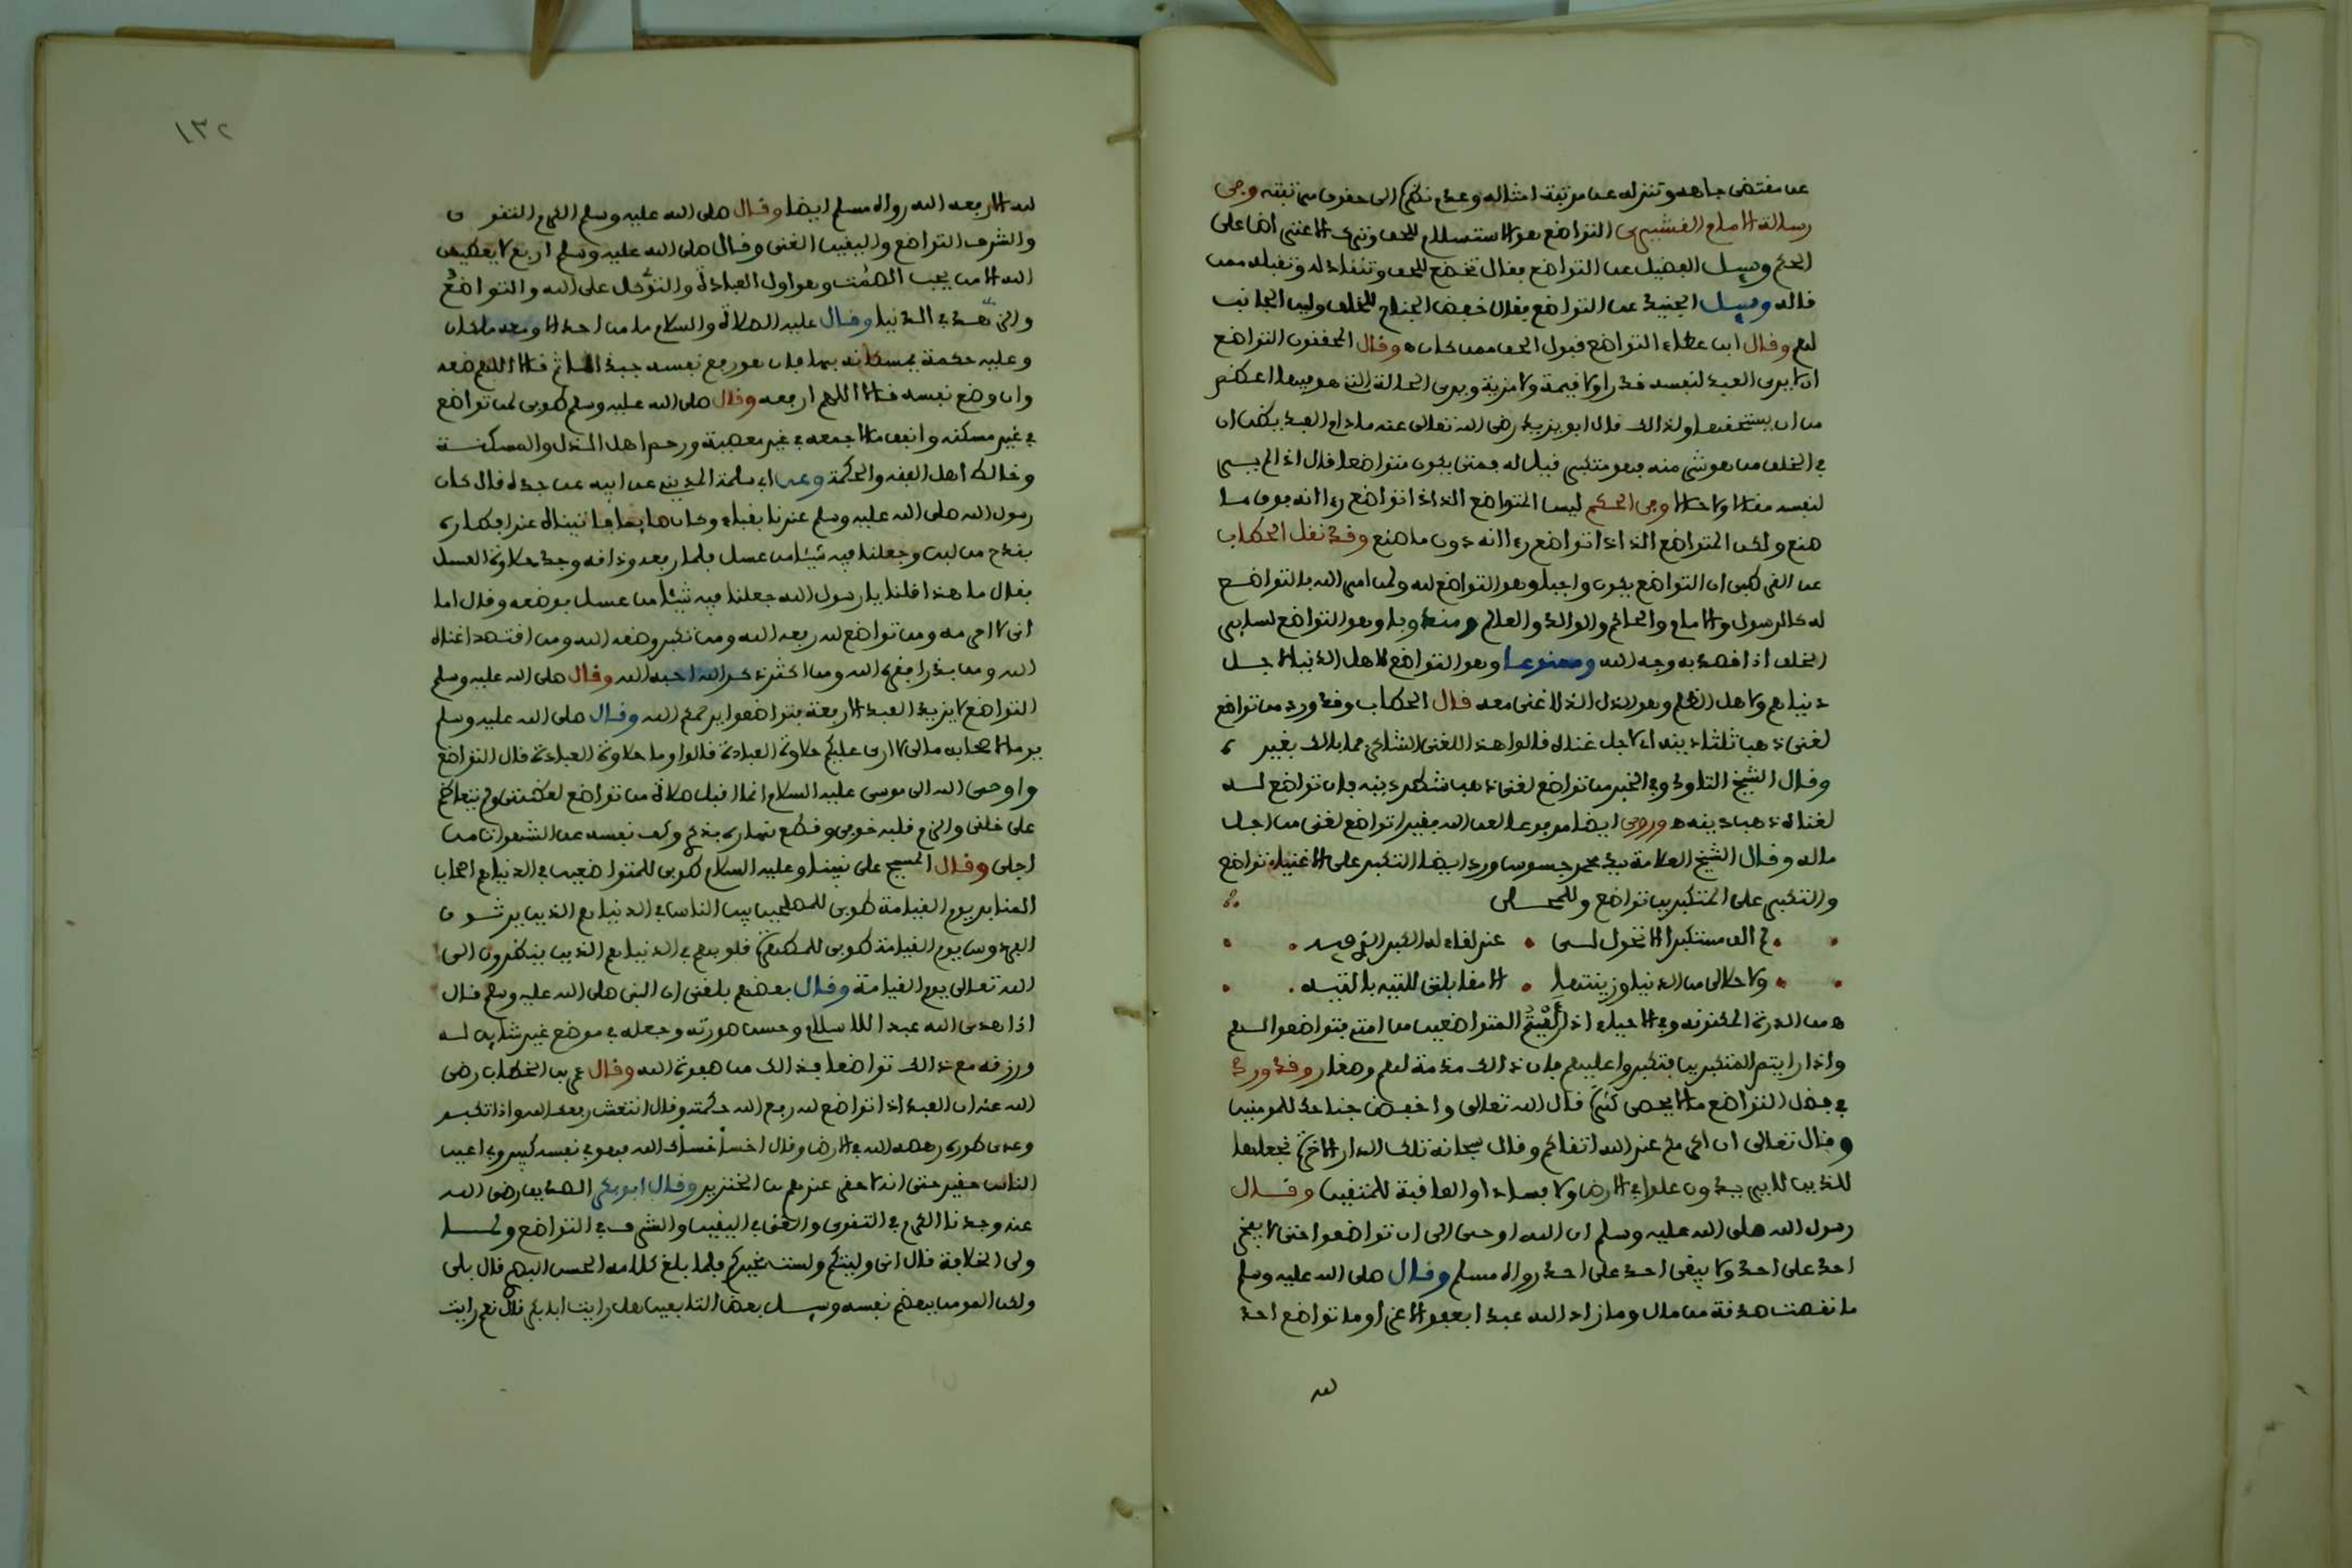 عن مقتضى جاهه وتنزله عن مرتبة امثاله وعدم نظره الى حقوق مرتبته وفي
رسالة الامام القشيري التواضع هو الاستسلام للحق وترك الاعتراض على
الحكم وسيل الفضيل عن التواضع فقال تخضع للحق وتنقاد له وتقبله ممن
قاله وسيل الجنيد عن التواضع فقال خفض الجناح للخلق ولين الجانب
لهم وقال ابن عطاء التواضع قبول الحق ممن كان وقال المحققون التواضع
ان لا يرى العبد لنفسه قدرا ولا قيمة ولا مزية ويرى الحالة التي هو فيها اعظم
من ان يستحقها ولذالك قال ابو يزيد رضي الله تعالى عنه مادام العبد يظن ان
في الخلق من هو شر منه فهو متكبر فيل له فمتى يكون متواضعا قال اذا لم ير
لنفسه مقالا ولا حالا وفي الحكم ليس المتواضع الذ اذا تواضع رءا انه فوق ما
صنع ولكن المتواضع الذ اذا تواضع رءا انه دون ما صنع وقد نقل الحطاب
عن القرطبي ان التواضع يكون واجبا وهو التواضع لله ولمن امر الله بالتواضع
له كالرسول والامام والحاكم والوالد والعالم ومندوبا وهو التواضع لساير
الخلق اذا قصد به وجه الله وممنوعا وهو التواضع لاهل الدنيا لاجل
دنياهم ولاهل الظلم وهو الذل الذ لا عز معه قال الحطاب وقد ورد من تواضع
لغني ذهب ثلثا دينه اي لاجل غناه قالوا هذا للغني الشاكر فما بالك بغيره
وقال الشيخ التاودي وفي الخبر من تواضع لغني ذهب شطر دينه فان تواضع له
لغناه ذهب دينه وروي ايضا مرفوعا لعن الله فقيرا تواضع لغني من اجل
ماله وقال الشيخ العلامة سيد محمد جسوس ورد ايضا التكبر على الاغنياء تواضع
والتكبر على المتكبرين تواضع
لم الق مستكبرا الا تحول لي عند لقاءه له الكبر الذي فيه
ولا حلا لي من الدنيا وزينتها الا مقابلتي للتيه بالتيه
من الدرة المكنونة وفي الاحياء اذا لقيتم المتواضعين من امتي فتواضعوا لهم
واذا رايتم المتكبرين فتكبروا عليهم فان ذالك مذمة لهم وصغار وقد ورد
في فضل التواضع ما لا يحصى كثرة قال الله تعالى واخفض جناحك للمومنين
وقال تعالى ان اكرمكم عند الله اتقاكم وقال سبحانه تلك الدار الاخرة نجعلها
للذين لا يريدون علوا في الارض ولا فسادا والعاقبة للمتقين وقال
رسول الله صلى الله عليه وسلم ان الله اوحى الي ان تواضعوا حتى لا يفخر
احد على احد ولا يبغي احد على احد رواه مسلم وقال صلى الله عليه وسلم
ما نقصت صدقة من مال وما زاد الله عبدا بعفو الا عزا وما تواضع احد
لله
١٣٢
لله الا رفعه الله رواه مسلم ايضا وقال صلى الله عليه وسلم الكرم التقوى
والشرف التواضع واليقين الغنى وقال صلى الله عليه وسلم اربع لا يعطيهن
الله الا من يحب الصمت وهو اول العبادة والتوكل على الله والتواضع
والزهد في الدنيا وقال عليه الصلاة والسلام ما من احد الا ومعه ملكان
وعليه حكمة يمسكانه بها فان هو رفع نفسه جبذاها ثم قالا اللهم ضعه
وان وضع نفسه قالا اللهم ارفعه وقال صلى الله عليه وسلم طوبى لمن تواضع
في غير مسكنة وانفق مالا جمعه في غير معصية ورحم اهل الذل والمسكنة
وخالط اهل الفقه والحكمة وعن ابي سلمة المديني عن ابيه عن جده قال كان
رسول الله صلى الله عليه وسلم عندنا بقباء وكان صايما فاتيناه عند افطاره
بقدح من لبن وجعلنا فيه شيئا من عسل فلما رفعه وذاقه وجد حلاوة العسل
فقال ما هذا قلنا يا رسول الله جعلنا فيه شيئا من عسل فوضعه وقال اما
اني لا احرمه ومن تواضع لله رفعه الله ومن تكبر وضعه الله ومن اقتصد اغناه
الله ومن بذر افقره الله ومن اكثر ذكر الله احبه الله وقال صلى الله عليه وسلم
التواضع لا يزيد العبد الا رفعة فتواضعوا يرحمكم الله وقال صلى الله عليه وسلم
يوما لاصحابه مالي لا ارى عليكم حلاوة العبادة قالوا وما حلاوة العبادة قال التواضع
واوحى الله الى موسى عليه السلام انما اقبل صلاة من تواضع لعظمتي ولم يتعاظم
على خلقي والزم قلبه خوفي وقطع نهاره بذكري وكف نفسه عن الشهوات من
اجلي وقال المسيح على نبينا وعليه السلام طوبى للمتواضعين في الدنيا هم اصحاب
المنابر يوم القيامة طوبى للمصلحين بين الناس في الدنيا هم الذين يرثون
الفردوس يوم القيامة طوبى للمطهرة قلوبهم في الدنيا هم الذين ينظرون الى
الله تعالى يوم القيامة وقال بعضهم بلغني ان النبي صلى الله عليه وسلم قال
اذا هدى الله عبدا للاسلام وحسن صورته وجعله في موضع غير شاين له
ورزقه مع ذالك تواضعا فذالك من صفوة الله وقال عمر بن الخطاب رضي
الله عنه ان العبد اذا تواضع لله رفع الله حكمته وقال انتعش رفعك الله واذا تكبر
وعدى طوره رهصه الله في الارض وقال اخسأ خسأك الله فهو في نفسه كبير وفي اعين
الناس حقير حتى انه لاحقر عندهم من الخنزير وقال ابو بكر الصديق رضي الله
عنه وجدنا الكرم في التقوى والغنى في اليقين والشرف في التواضع ولما
ولي الخلافة قال اني وليتكم ولست بخيركم فلما بلغ كلامه الحسن البصري قال بلى
ولكن المومن يهضم نفسه وسيل بعض التابعين هل رايت ابا بكر قال نعم رايت